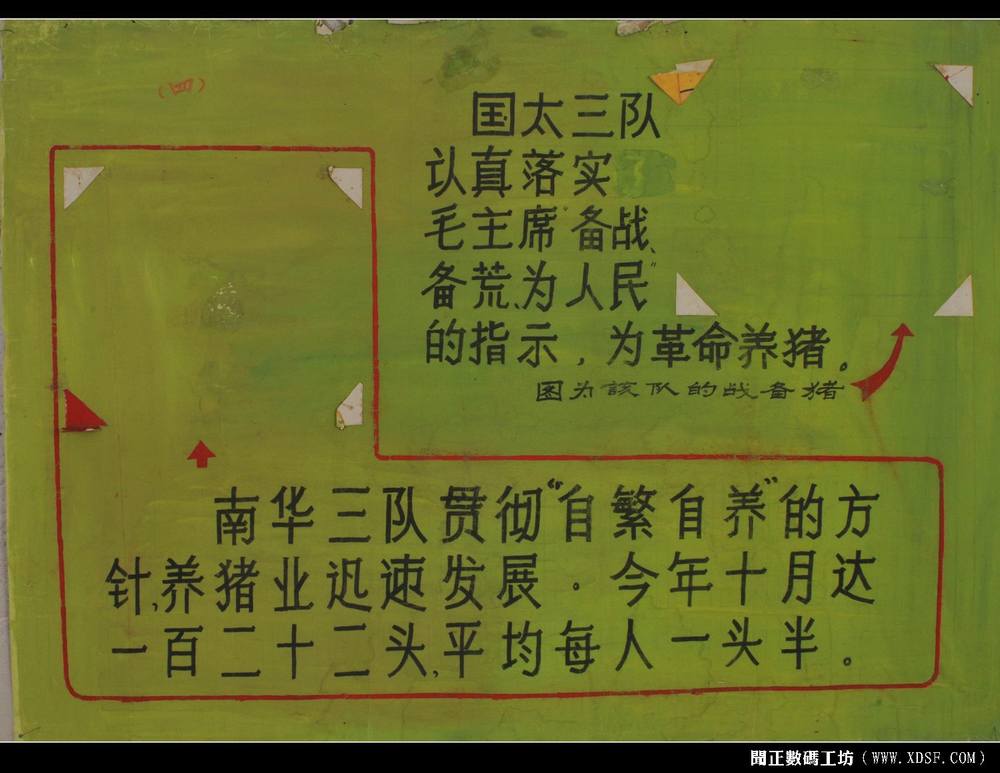 (四)
国太三队
认真落实
毛主席 备战、
备荒、为人民"
的指示，为革命养猪。
图为該队的战备猪
南华三队贯彻"自繁自养"的方
针,养猪业迅速发展．今年十月达
一百二十二头,平均每人一头半。
閱正數碼工坊（WWW.XDSF.COM）